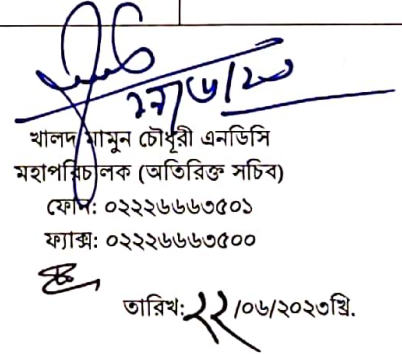 ২২/৬/২৩
খালদ মামুন চৌধুরী এনডিসি
মহাপরিচালক (অতিরিক্ত সচিব)
ফোন: ০২২২৬৬৬৩৫০১
ফ্যাক্স: ০২২২৬৬৬৩৫০০
তারিখ: ২২/০৬/২০২৩খ্রি.